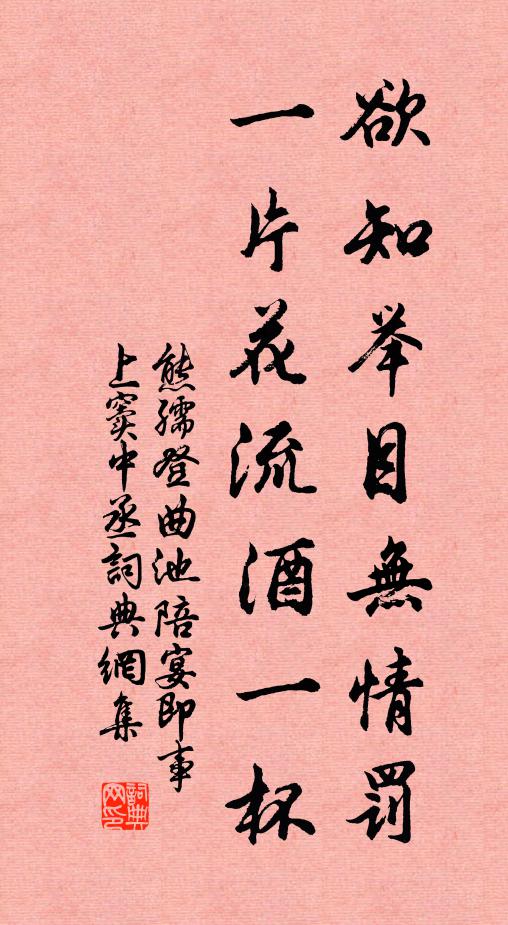 欲知举目無情罰
一片花流酒一杯
熊孺登曲池陪宴即事
上窦中丞詞典網集
詞典網印